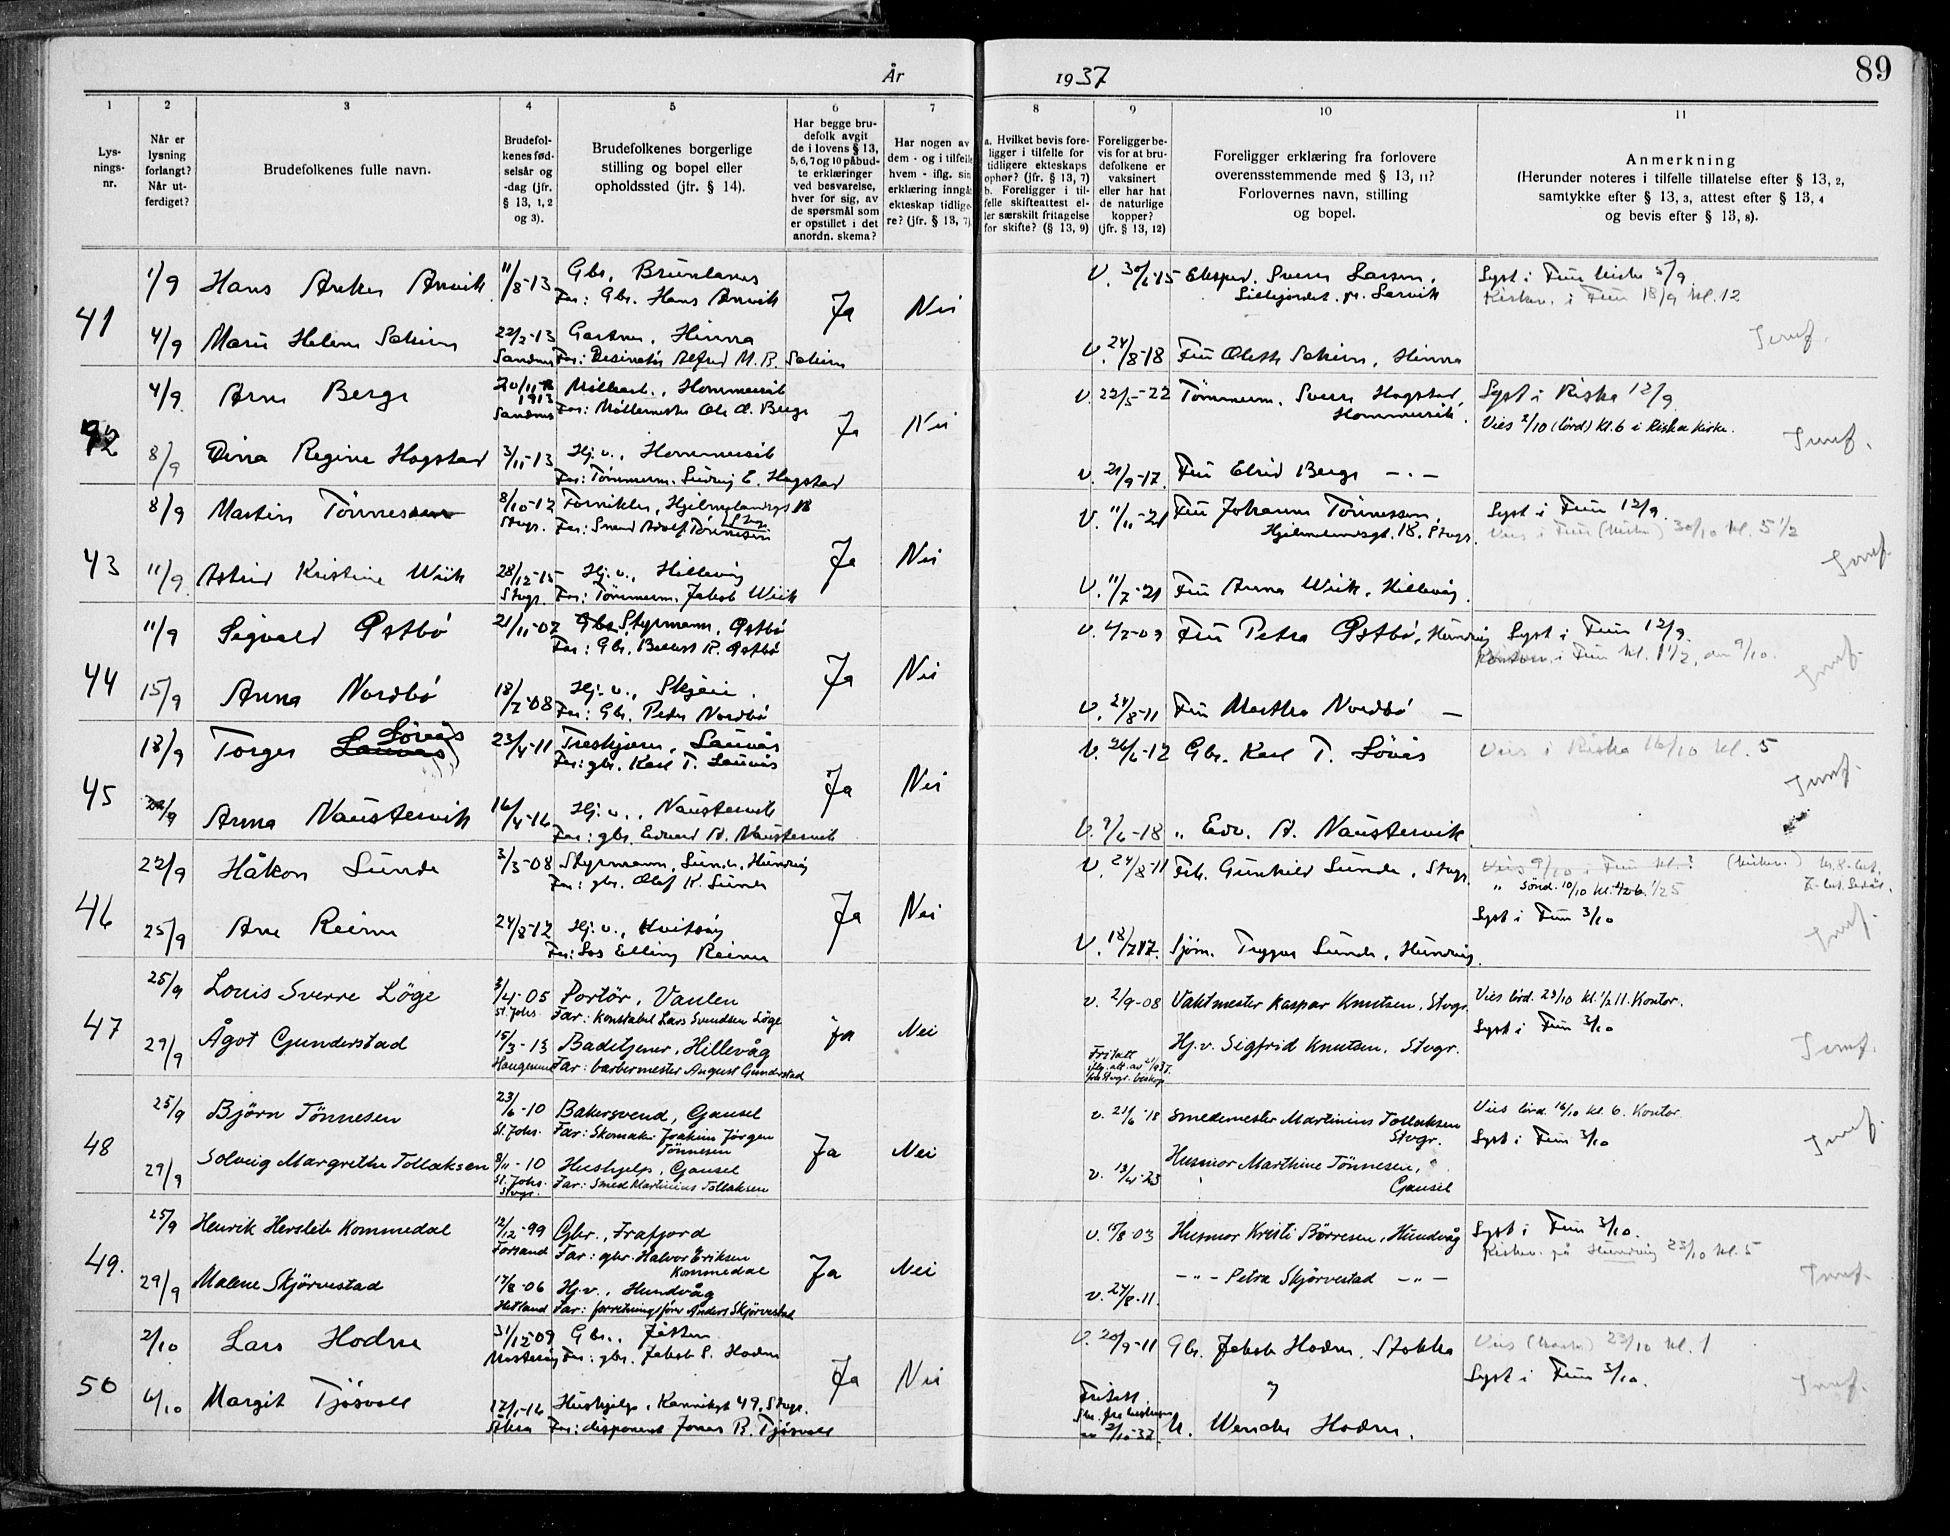 År 1937
89
1 2 3 4 5 6 7 8 9 10 11
Lysningsnr.
Når er lysning forlangt? Når utferdiget?
Brudefolkenes fulle navn.
Brudefolkenes fødselsår og -dag (jfr. § 13, 1, 2 og 3).
Brudefolkenes borgerlige stilling og bopel eller opholdssted (jfr. § 14).
Har begge brudefolk avgit de i lovens § 13, 5, 6, 7 og 10 påbudte erklæringer ved besvarelse, hver for sig, av de spørsmål som er opstillet i det anordn. skema?
Har nogen av dem - og i tilfelle hvem - iflg. sin erklæring inngått ekteskap tidligere? (jfr. § 13, 7)
a. Hvilket bevis foreligger i tilfelle for tidligere ekteskaps ophør? (jfr. § 13, 7) b. Foreligger i tilfelle skifteattest eller særskilt fritagelse for skifte? (§ 13, 9)
Foreligger bevis for at brudefolkene er vaksinert eller har hat de naturlige kopper? (jfr. § 13, 12)
Foreligger erklæring fra forlovere overensstemmende med § 13, 11? Forlovernes navn, stilling og bopel.
Anmerkning (Herunder noteres i tilfelle tillatelse efter § 13, 2, samtykke efter § 13, 3, attest efter § 13, 4 og bevis efter § 13, 8).
41
1/9 Hans Anker Anvik 11/8-13 Gbr., Brunlanes
Far: Gbr. Hans Anvik
Ja Nei
V. 30/6-15 Eksped. Sverre Larsen,
Lyst i Frue kirke 5/9
Kirkev. i Frue 18/9 kl. 12
4/9 Marie Helene 22/2-13 Gartner, Hinna
Sandnes
V. 24/8-18 Fru
Hinna
42
4/9 Arne Berge 20/11-1913 Møllearb., Hommersåk
Sandnes Far: Møllemester Ole O. Berge
Ja Nei
V. 22/5-22 Tømmerm. Sverre Hogstad, Hommersåk.
Lyst i Riska 12/9
Vies 2/10 (lörd) kl. 6 i Riska kirke.
8/9 Dina Regine Hogstad 3/11-13 Hj.v., Hommersåk
Far: Tømmerm. Ludvig E. Hogstad
V. 21/9-17. Fru Elrid Berge - " -
43
8/9 Martin Tönnessen 8/10-12 Fornikler, Hjelmelandsgt 18
Stvgr. Far: Svend Adolf Tönnesen
Stvgr.
Ja Nei
V. 11/11-21 Fru Johanne Tönnessen,
Hjelmelandsgt. 18, Stvgr.
Lyst i Frue 12/9.
Vies i Frue (kirke) 30/10 kl. 5 1/2
11/9 Astrid Kristine Wiik 28/12-15 Hj.v., Hillevåg
Stvgr. Far: Tømmerm. Jakob Wiik
V. 11/7-21 Fru Anna Wiik, Hillevåg.
44
11/9 Sigvald Østbö 21/11-02 Gbr. Styrmann, Østbö
Far: Gbr. Østbö
Ja Nei
V. 4/7-09 Fru Petra Østbö, Hundvåg
Lyst i Frue 12/9.
i Frue kl. 1 1/2, den 9/10.
15/9 Anna Nordbö 18/7-08 Hj.v., Skjeie.
Far: Gbr. Peder Nordbö
V. 24/8-11 Fru Martha Nordbö -
45
18/9 Torger Lauvås Lövås 23/4-11 Treskjærer, Lauvås
Far: gbr. Karl T. Lauvås
Ja Nei
V. 26/6-12 Gbr. Karl T. Lövås
Vies i Riska 16/10 kl. 5
22/9 Anna Naustervik 16/4-16 Hj.v., Naustervik
Far: gbr. Edvard A. Naustervik
V. 7/6-18 " Edv. A. Naustervik
46
22/9 Håkon Sunde 3/3-08 Styrmann, Sunde, Hundvåg
Far: gbr. Olaf K. Sunde
Ja Nei
V. 24/8-11 Frk. Gunhild Sunde, Stvgr.
Vies 9/10 i Frue kl. ? (kirkev.)
" sönd. 10/10
Lyst i Frue 3/10
25/9 Ane Reime 24/8-12 Hj.v., Kvitsöy
Far: Los Elling Reime
V. 18/7-17. Sjøm. Trygve Sunde, Hundvåg.
47
25/9 Louis Sverre Löge 3/4-05 Portör, Vaulen
St. Johs. Far: konstabel Lars Svendsen Löge
Ja Nei
V. 2/9-08 Vaktmester Kaspar Knutsen, Stvgr.
Vies lörd. 23/10 kl. 1/2 11. Kontor.
Lyst i Frue 3/10
29/9 Ågot Gunderstad 15/3-13 Badetjener, Hillevåg
Haugesund Far: barbermester August Gunderstad
Fritatt
Hj.v. Sigfrid Knutsen, Stvgr.
48
25/9 Björn Tönnesen 23/6-10 Bakersvend, Gausel
St. Johs. Far: Skomaker Joakim Jörgen Tönnesen
Ja Nei
V. 21/6-18 Smedemester Martinius Tollaksen Stvgr.
Vies lörd. 16/10 kl. 6. Kontor.
Lyst i Frue 3/10
29/9 Solveig Margrethe Tollaksen 8/11-10 Hushjelp, Gausel
St. Johs. Stvgr. Far: Smed Martinius Tollaksen
V. 13/4-23 Husmor Marthine Tönnesen, Gausel
49.
25/9 Henrik Hersleb Kommedal 12/12-99 Gbr., Frafjord
Forsand Far: gbr. Halvor Eriksen Kommedal
Ja Nei
Husmor Kristi Börresen, Hundvåg
Lyst i Frue 3/10.
Kirkev. på Hundvåg 23/10 kl. 5
29/9 Malene Skjörvestad 17/8-06 Hj.v., Hundvåg
Hetland Far: forretningsförer Anders Skjörvestad
V. 24/8-11. - " - Petra Skjörvestad - " -
50
2/10 Lars Hodne 31/12-09 Gbr., Jåtten
Mosteröy Far: gbr. Jakob S. Hodne
Ja Nei
V. 20/9-11 Gbr. Jakob Hodne, Stokka
Vies 23/10 kl. 1
Lyst i Frue 3/10.
6/10 Margit Tjösvoll Hushjelp, Kannikgt 49, Stvgr.
Åkra Far: disponent Jonas R. Tjösvoll
Fritatt
Wenche Hodne.